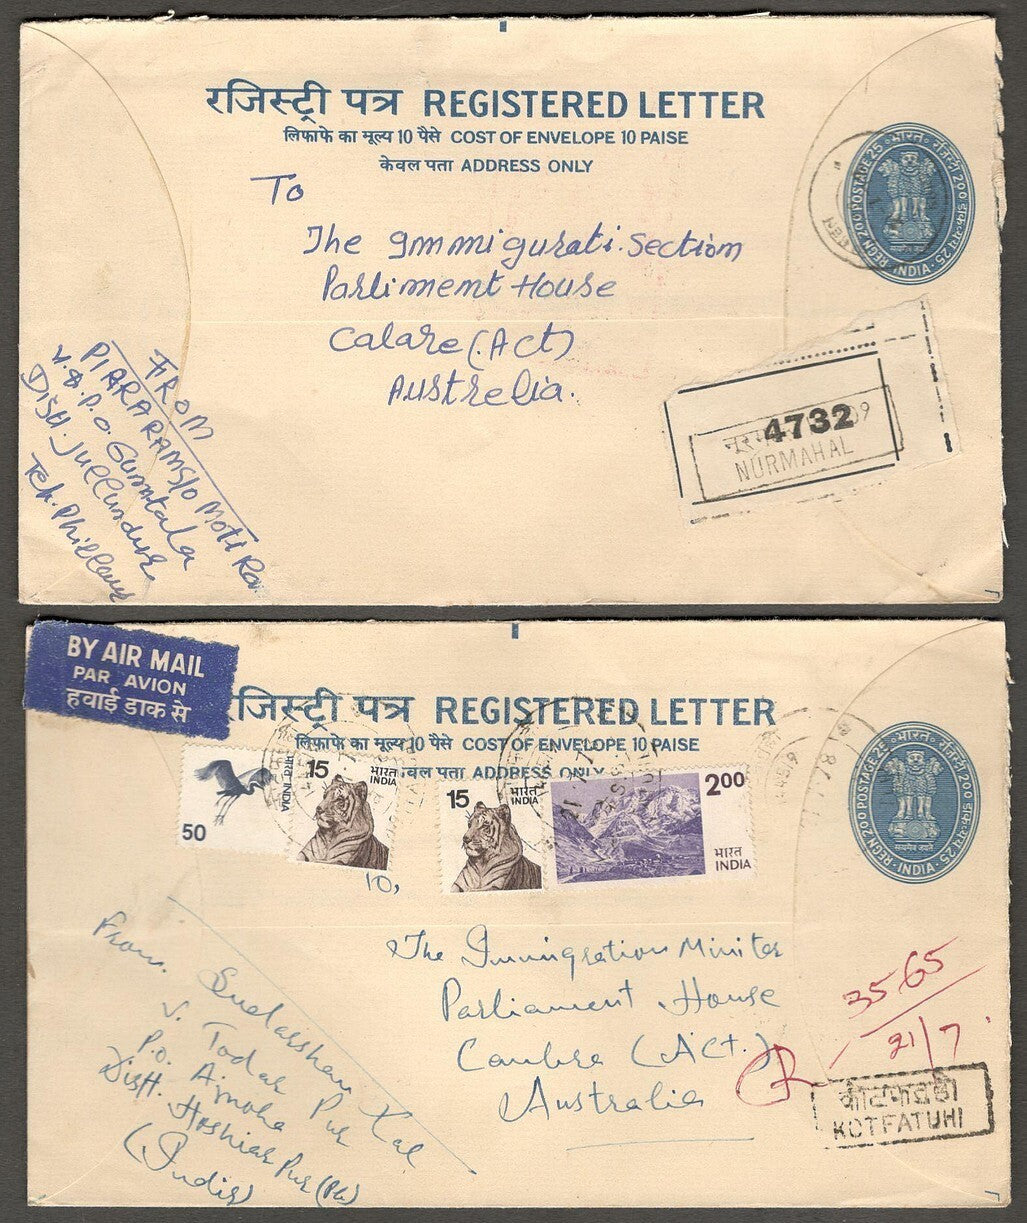 रजिस्ट्री पत्र REGISTERED LETTER
लिफाफे का मूल्य 10 पैसे COST OF ENVELOPE 10 PAISE
केवल पता ADDRESS ONLY
भारत रजिस्ट्री 200 डाक व्यय 25 INDIA REGN 200 POSTAGE 25
To
The Immigurati. Section
Parliment House
Calare (Act)
Australia.
FROM
PIARA RAM S/O Moti Ra
V. & P.O. Gumtala
Distt. Jullundur
Teh. Phillaur
4732
NURMAHAL
BY AIR MAIL
PAR AVION
हवाई डाक से
रजिस्ट्री पत्र REGISTERED LETTER
लिफाफे का मूल्य 10 पैसे COST OF ENVELOPE 10 PAISE
केवल पता ADDRESS ONLY
50
भारत INDIA
15
भारत
INDIA
15
भारत
INDIA
2.00
भारत
INDIA
भारत रजिस्ट्री 200 डाक व्यय 25 INDIA REGN 200 POSTAGE 25
सत्यमेव जयते
10,
The Immigration Minister
Parliament House
Canbra (Act.)
Australia
From. Sudarshan Lal
V. Todar Pur
P.O. Ajnoha
Distt. Hoshiar Pur (Pb)
(India)
3565
21/7
R
कोटफतुही
KOTFATUHI